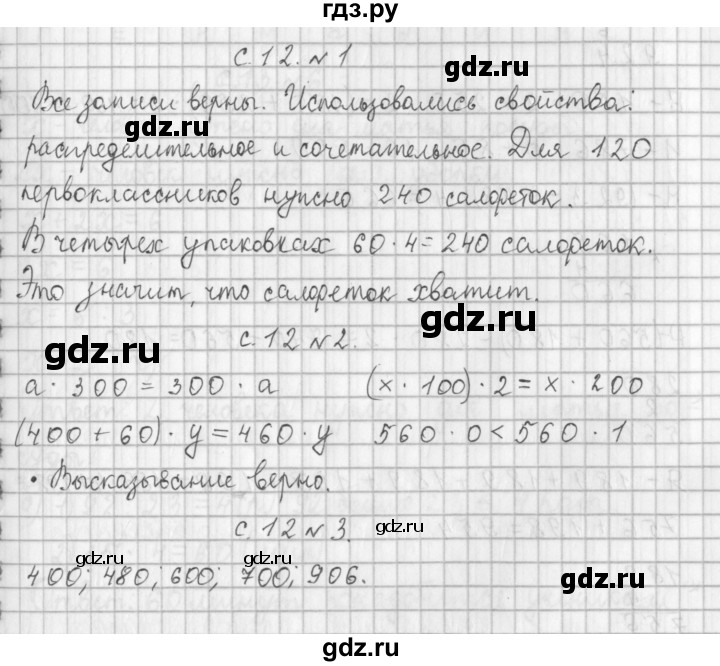 гдз.ру
с. 12. №1
Все записи верны. Использовались свойства:
gdz.ru
gdz.ru
распределительное и сочетательное. Для 120
первоклассников нужно 240 салфеток.
В четырех упаковках 60·4=240 салфеток.
Это значит, что салфеток хватит.
gdz.ru
с. 12 №2.
gdz.ru
a · 300 = 300 · a (x · 100) · 2 = x · 200
(400 + 60) · y = 460 · y 560 · 0 < 560 · 1
• Высказывание верно.
с. 12 №3.
gdz.ru
gdz.ru
gdz.ru
gdz.ru
400; 480; 600; 700; 906.
gdz.ru